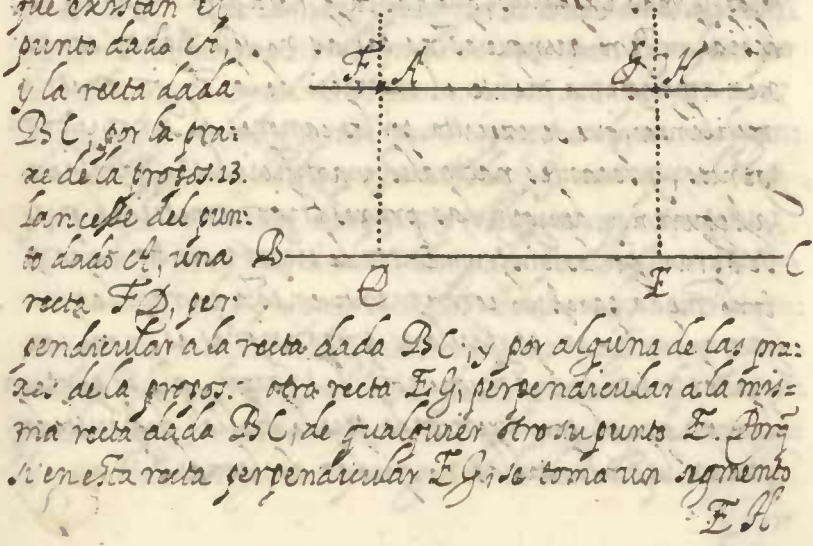 que existan el
punto dado A,
y la recta dada
BC, por la pra:
xe de la propos. 13.
Lancesse del pun:
to dado A, una
recta FD, per:
F A G H
B C
D E
pendicular a la recta dada BC, y por alguna de las pra:
xes de la propos: otra recta EG, perpendicular a la mis=
ma recta dada BC, de qualquier otro su punto E. Porq̃
si en esta recta perpendicular EG, se toma un segmento
EH